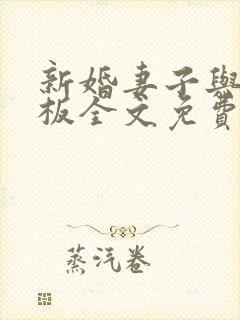 新婚妻子與
板全文免費
蒸汽卷